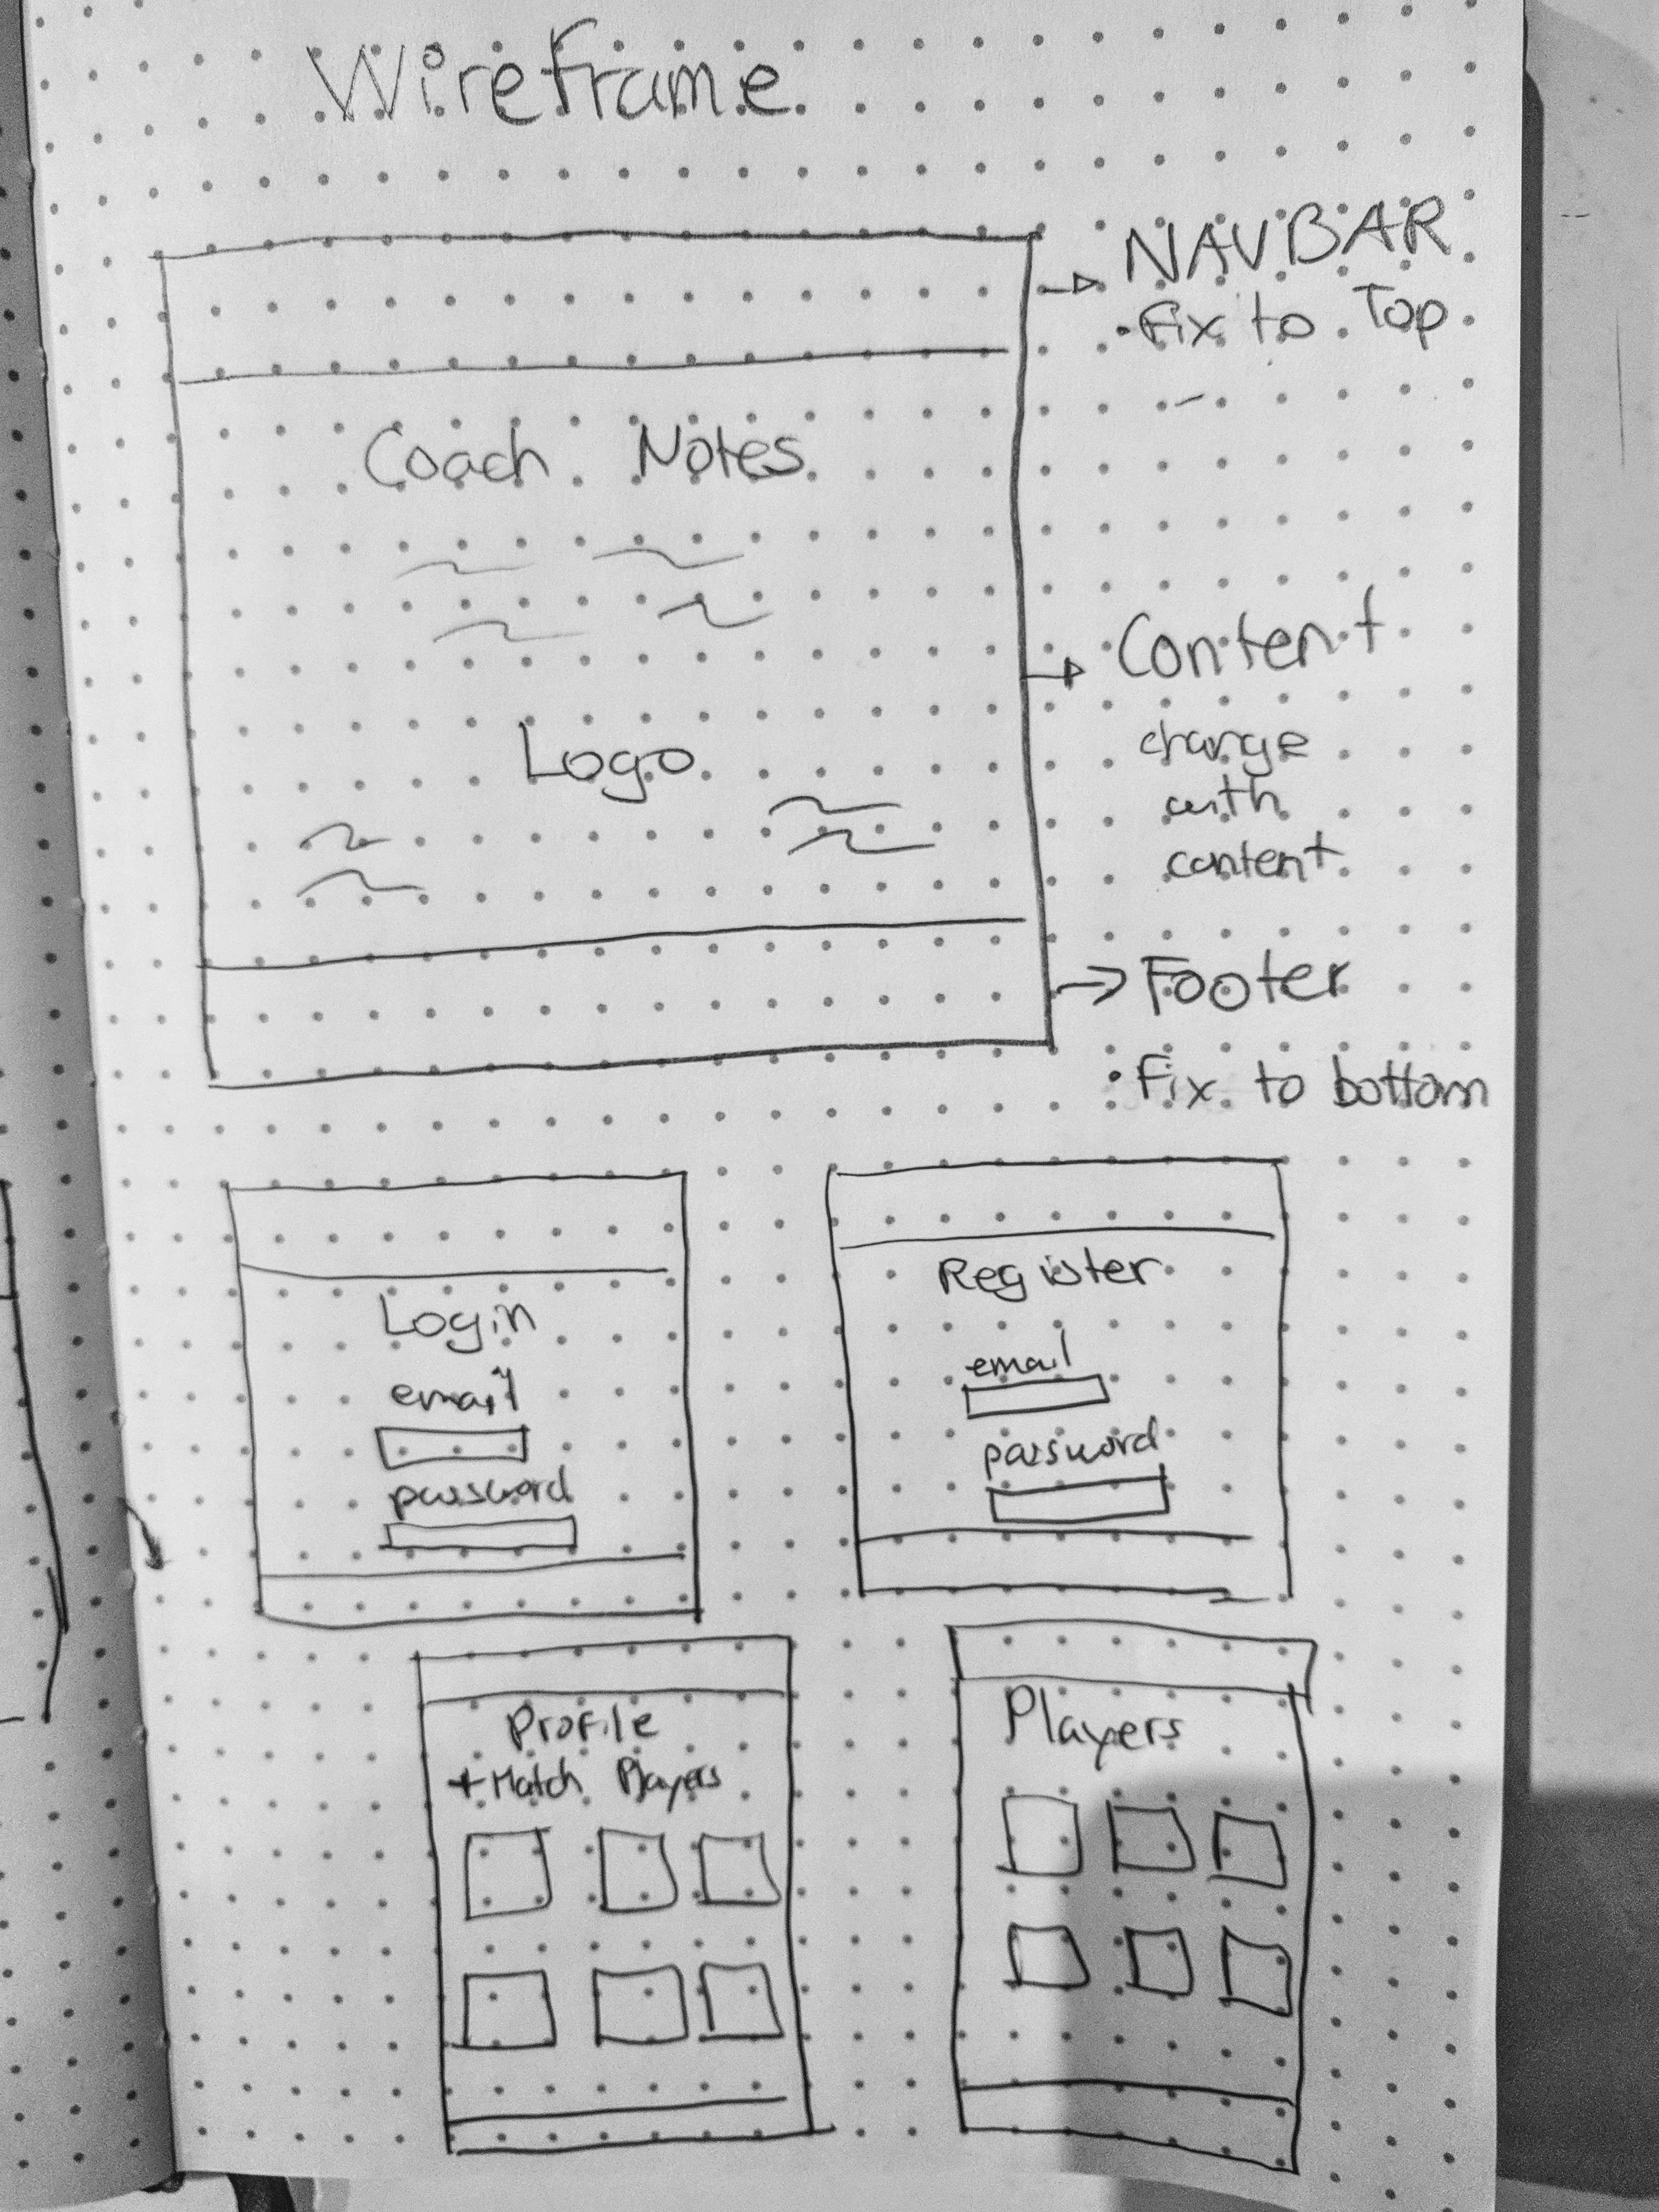 Wireframe
NAVBAR
• Fix to Top
Coach Notes
Content
change
with
content
Logo
Footer
• Fix to bottom
Login
email
password
Register
email
password
Profile
+ Match Players
Players